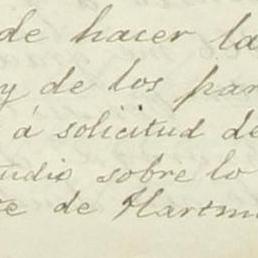 de hacer la
y de los par
á solicitud de
tudio sobre lo
te de Hartm